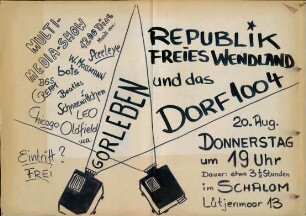 MULTI-
MEDIA-SHOW
1200 Dias
Musik von:
Steeleye
W. Mossmann
bots
BGS
Beatles
CREAM
Schneewittchen
LEO
Chicago
Oldfield
u.a.
Eintritt?
FREI
GORLEBEN
REPUBLIK
FREIES WENDLAND
und das
DORF 1004
20. Aug.
DONNERSTAG
um 19 Uhr
Dauer: etwa 3½ Stunden
im SCHALOM
Lütjenmoor 13